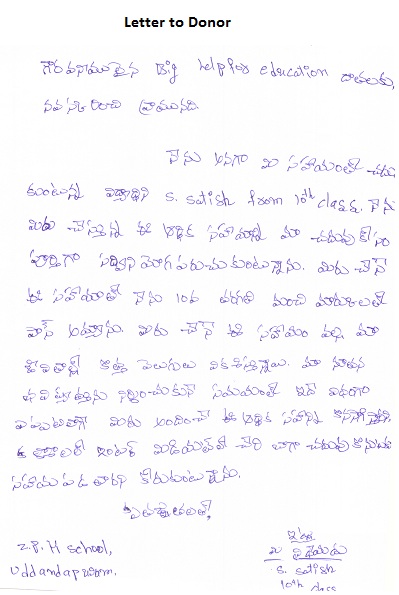 Letter to Donor
గౌరవనీయులైన Big help for education దాతలకు,
నమస్కరించి వ్రాయునది.
నేను అనగా మీ సహాయంతో చదువు
కుంటున్న విద్యార్థిని S. Satish from 10th class. నేను
మీరు చేస్తున్న ఈ ఆర్థిక సహాయాన్ని మా చదువు కోసం
పూర్తిగా సద్వినియోగ పరుచుకుంటున్నాను. మీరు చేసే
ఈ సహాయంతో నేను 10వ తరగతి మంచి మార్కులతో
పాస్ అవుతాను. మీరు చేసే ఈ సహాయం వల్ల మా
జీవితాల్లో కొత్త వెలుగులు వికసిస్తున్నాయి. మా నూతన
భవిష్యత్తును నిర్మించుకునే సమయంలో ఇదే విధంగా
మీరు అందించే ఈ ఆర్థిక
ఇంటర్ మీడియట్ లో చేరి బాగా చదువు
సహాయ పడ తారని కోరుకుంటున్నాను.
కృతజ్ఞతలతో,
ఇట్లు
Z.P.H School,
Uddandapuram.
మీ విధేయుడు
S. Satish
10th class